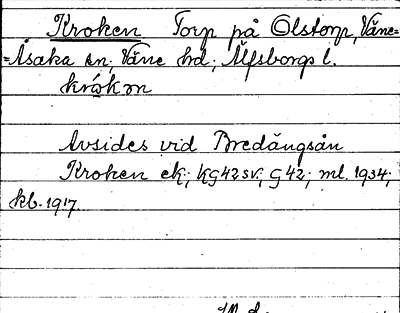 Kroken Torp på Olstorp, Väne=
=Åsaka sn, Väne hd, Älfsborgs l.
krókən
Avsides vid Bredängsån
Kroken ek; kG42sv; G42; ml. 1934;
kb. 1917